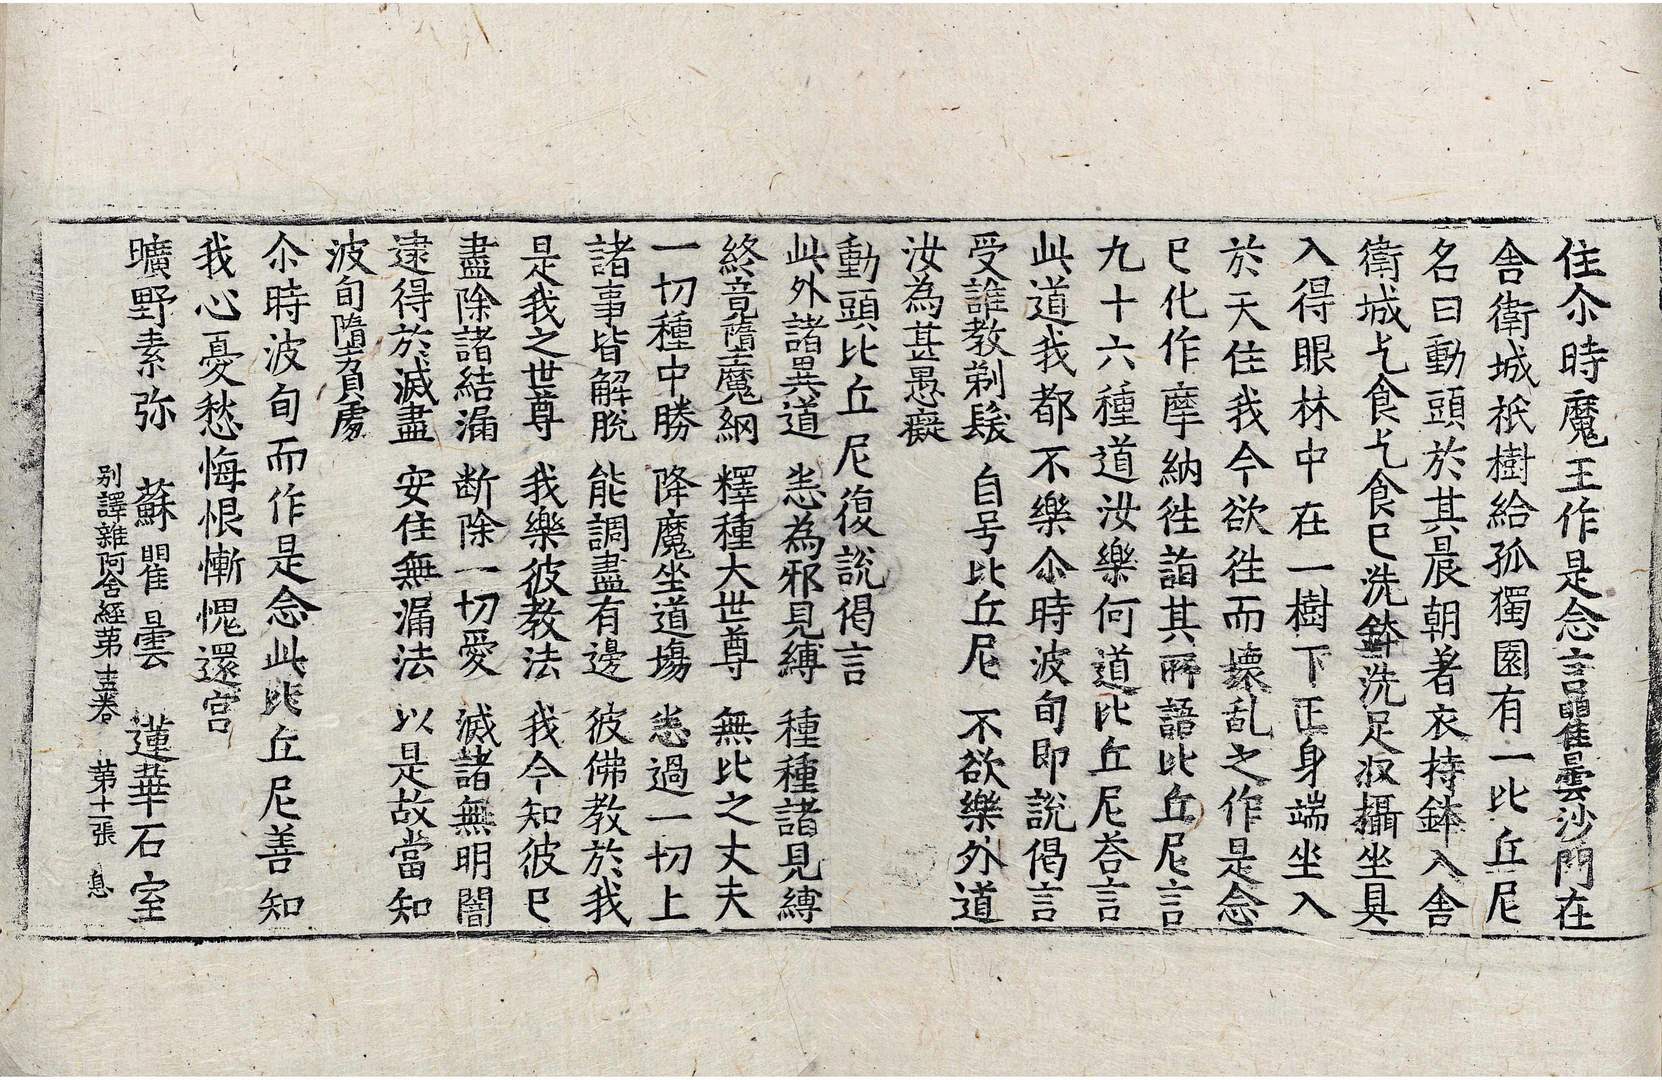 住尒時魔王作是念言瞿曇沙門在
舎衛城祇樹給孤獨園有一比丘尼
名曰動頭於其晨朝著衣持鉢入舎
衛城乞食乞食已洗鉢洗足収攝坐具
入得眼林中在一樹下正身端坐入
於天住我今欲徃而壞乱之作是念
已化作摩納徃詣其所語比丘尼言
九十六種道汝樂何道比丘尼荅言
此道我都不樂尒時波旬即說偈言
受誰教剃髮　自号比丘尼　不欲樂外道
汝為甚愚癡
動頭比丘尼復說偈言
此外諸異道　悉為邪見縛　種種諸見縛
終竟墮魔網　釋種大世尊　無比之丈夫
一切種中勝　降魔坐道塲　悉過一切上
諸事皆解脫　能調盡有邊　彼佛教於我
是我之世尊　我樂彼教法　我今知彼已
盡除諸結漏　断除一切愛　滅諸無明闇
逮得於滅盡　安住無漏法　以是故當知
波旬墮負處
尒時波旬而作是念此比丘尼善知
我心憂愁悔恨慚愧還宮
曠野素弥　蘇瞿曇　蓮華石室
别譯雜阿含經第十二卷　第十一張　息